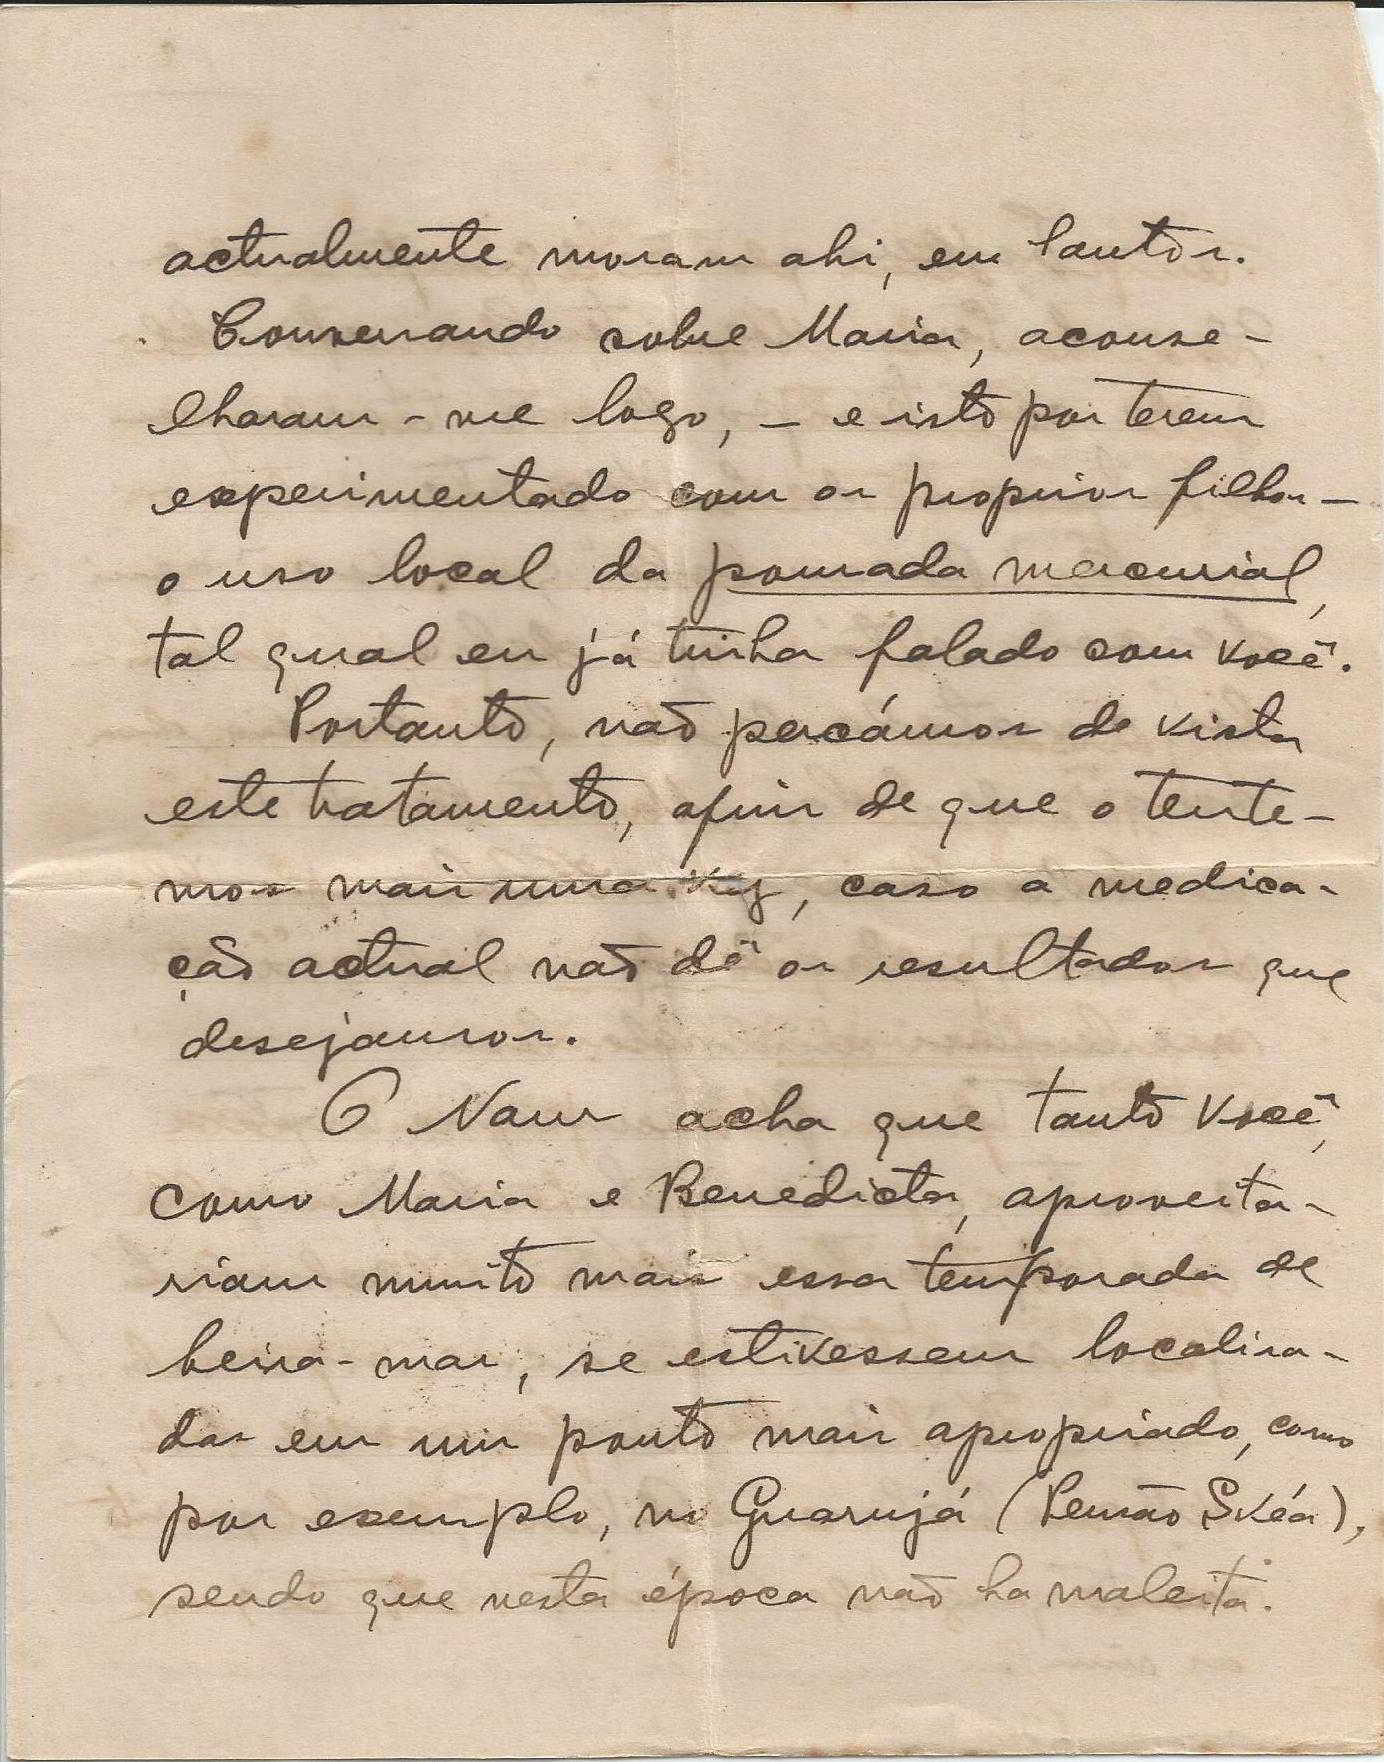 actualmente moram ahi, em Santos.
Conversando sobre Maria, aconse-
lharam-me logo, - e isto por terem
experimentado com os proprios filhos -
o uso local da pomada mercurial,
tal qual eu já tinha falado com você.
Portanto, não percâmos de vista
este tratamento, afim de que o tente-
mos mais uma vez, caso a medica-
ção actual não dê os resultados que
desejamos.
O Nam acha que tanto você,
como Maria e Benedicta, aproveita-
riam muito mais essa temporada de
beira-mar, se estivessem localisa-
das em um ponto mais apropriado, como
por exemplo, no Guarujá (Pensão
sendo que nesta época não ha maleita.